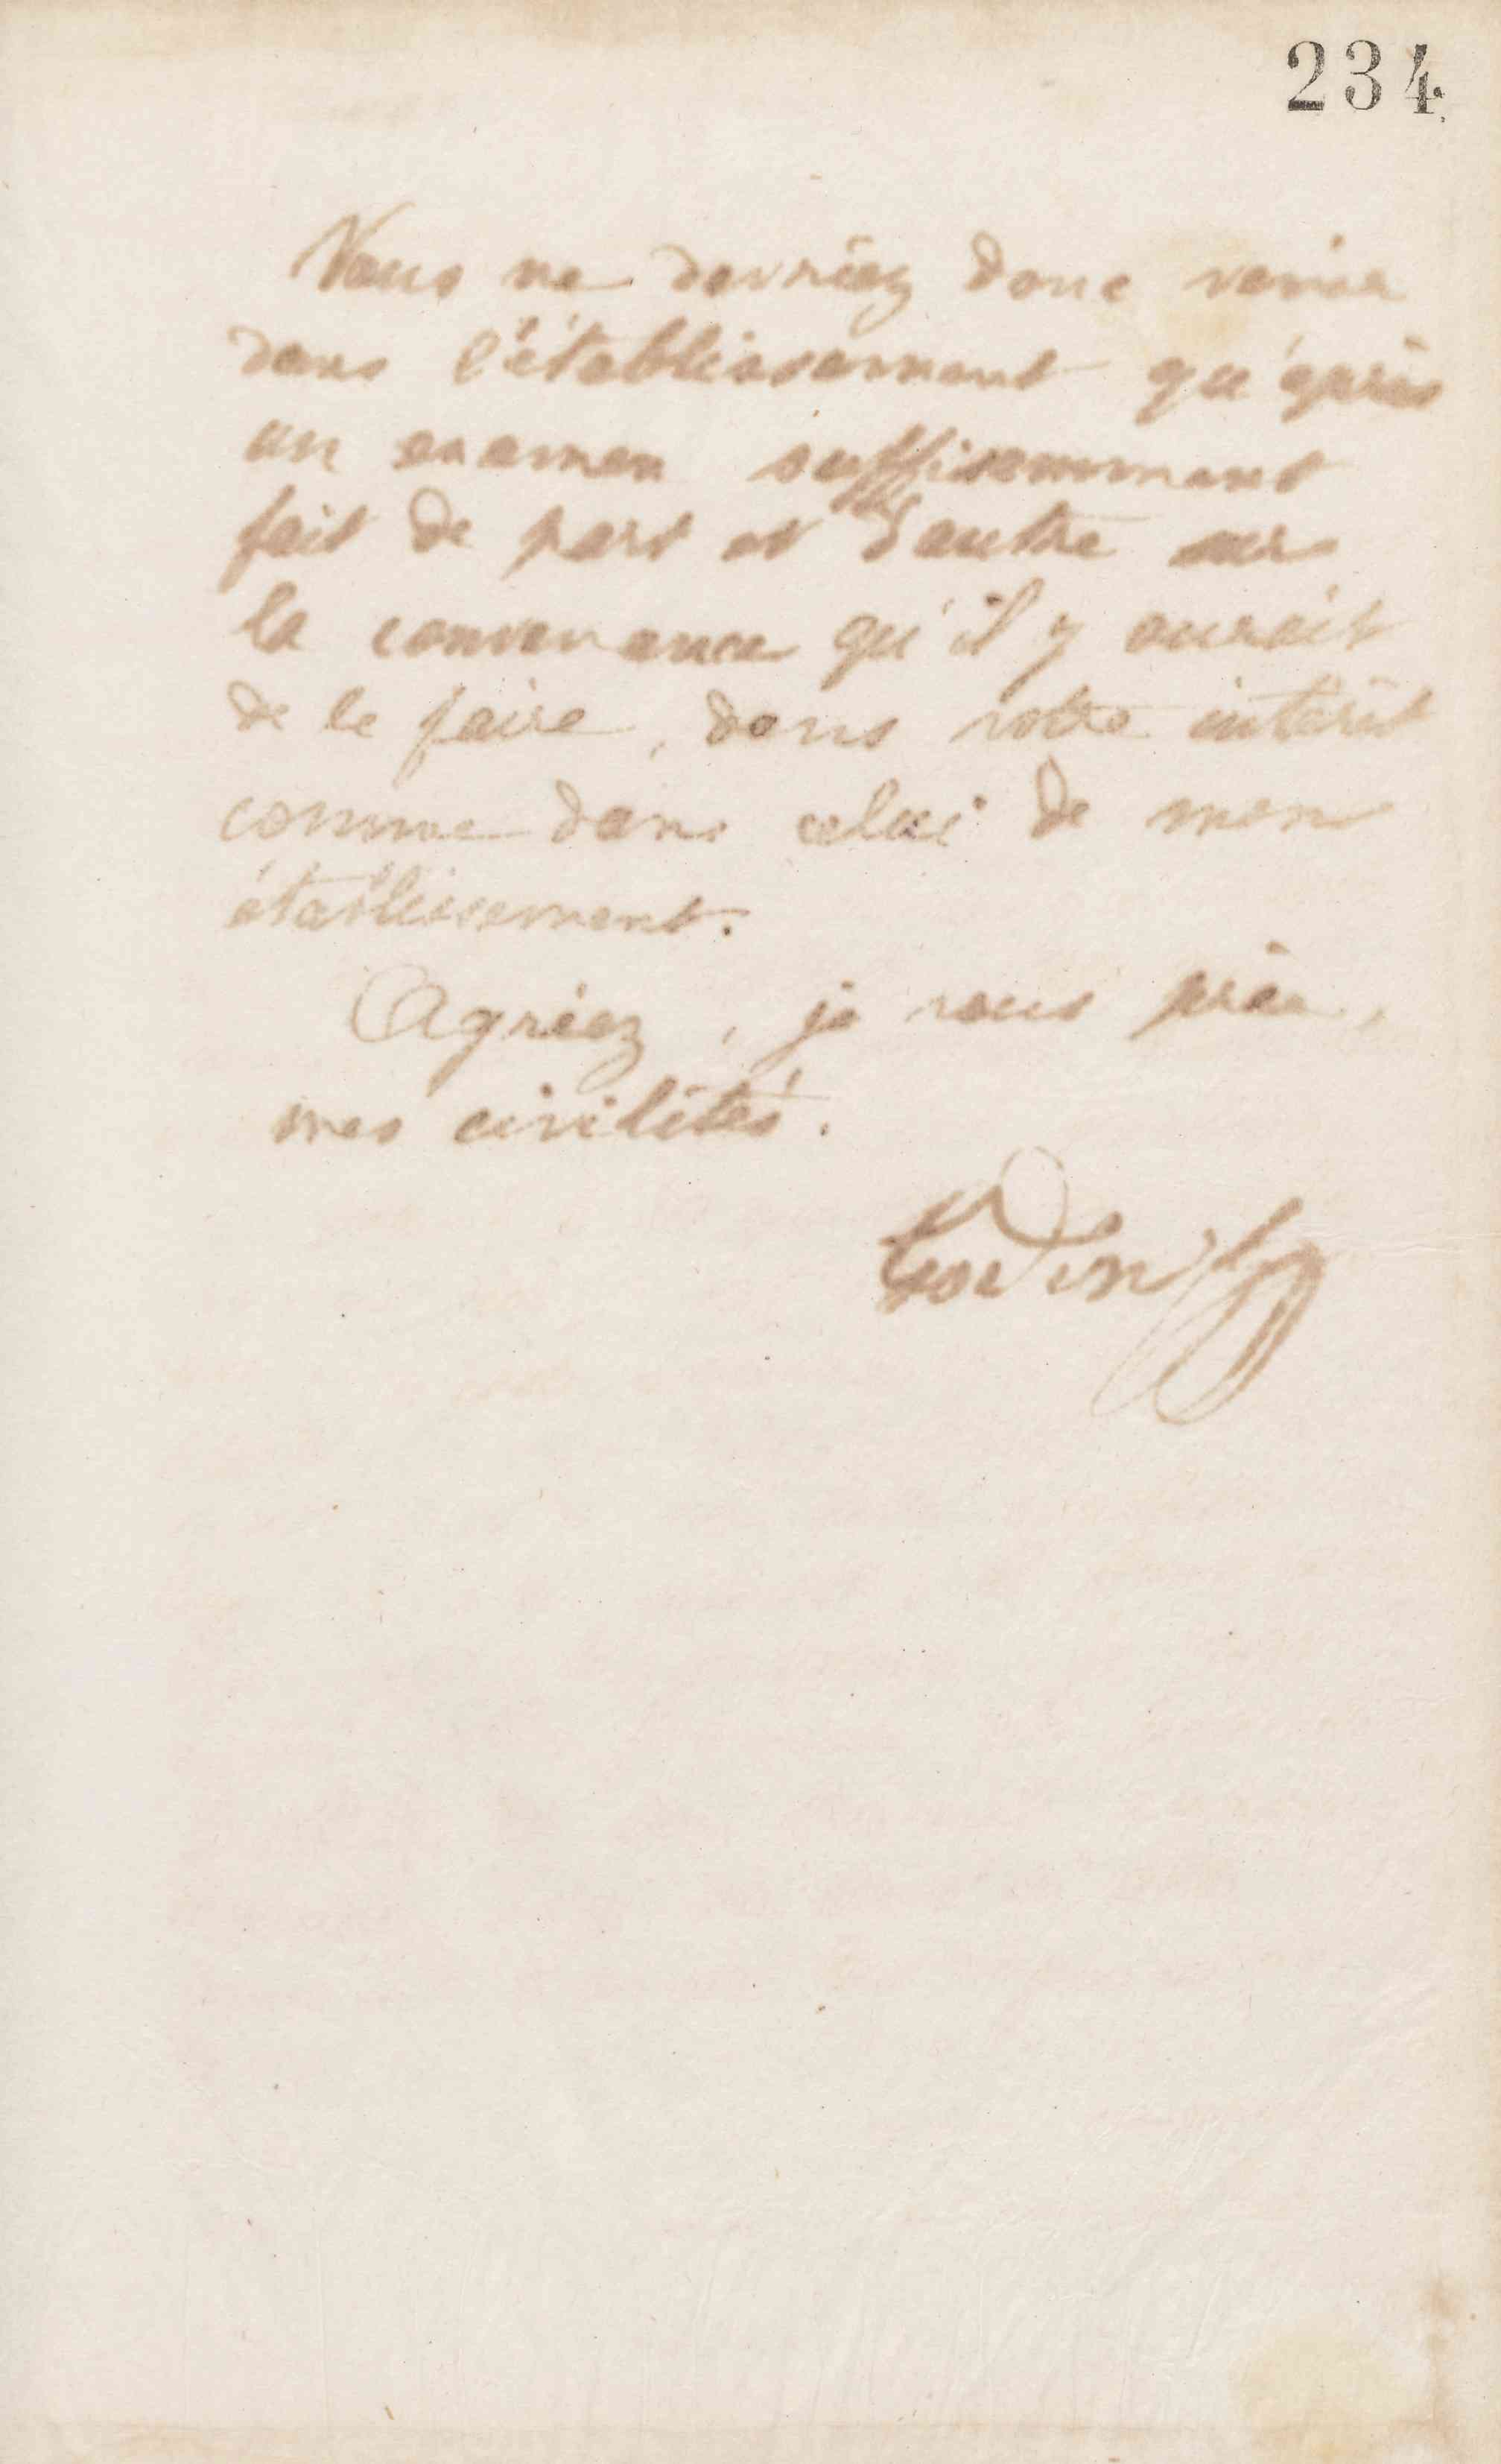 234
Vous ne devriez donc venir
dans l'établissement qu'après
un examen suffisamment
fait de part et d'autre sur
la convenance qu'il y aurait
de le faire, dans votre intérêt
comme dans celui de mon
établissement.
Agréez, je vous prie,
mes civilités.
Godin